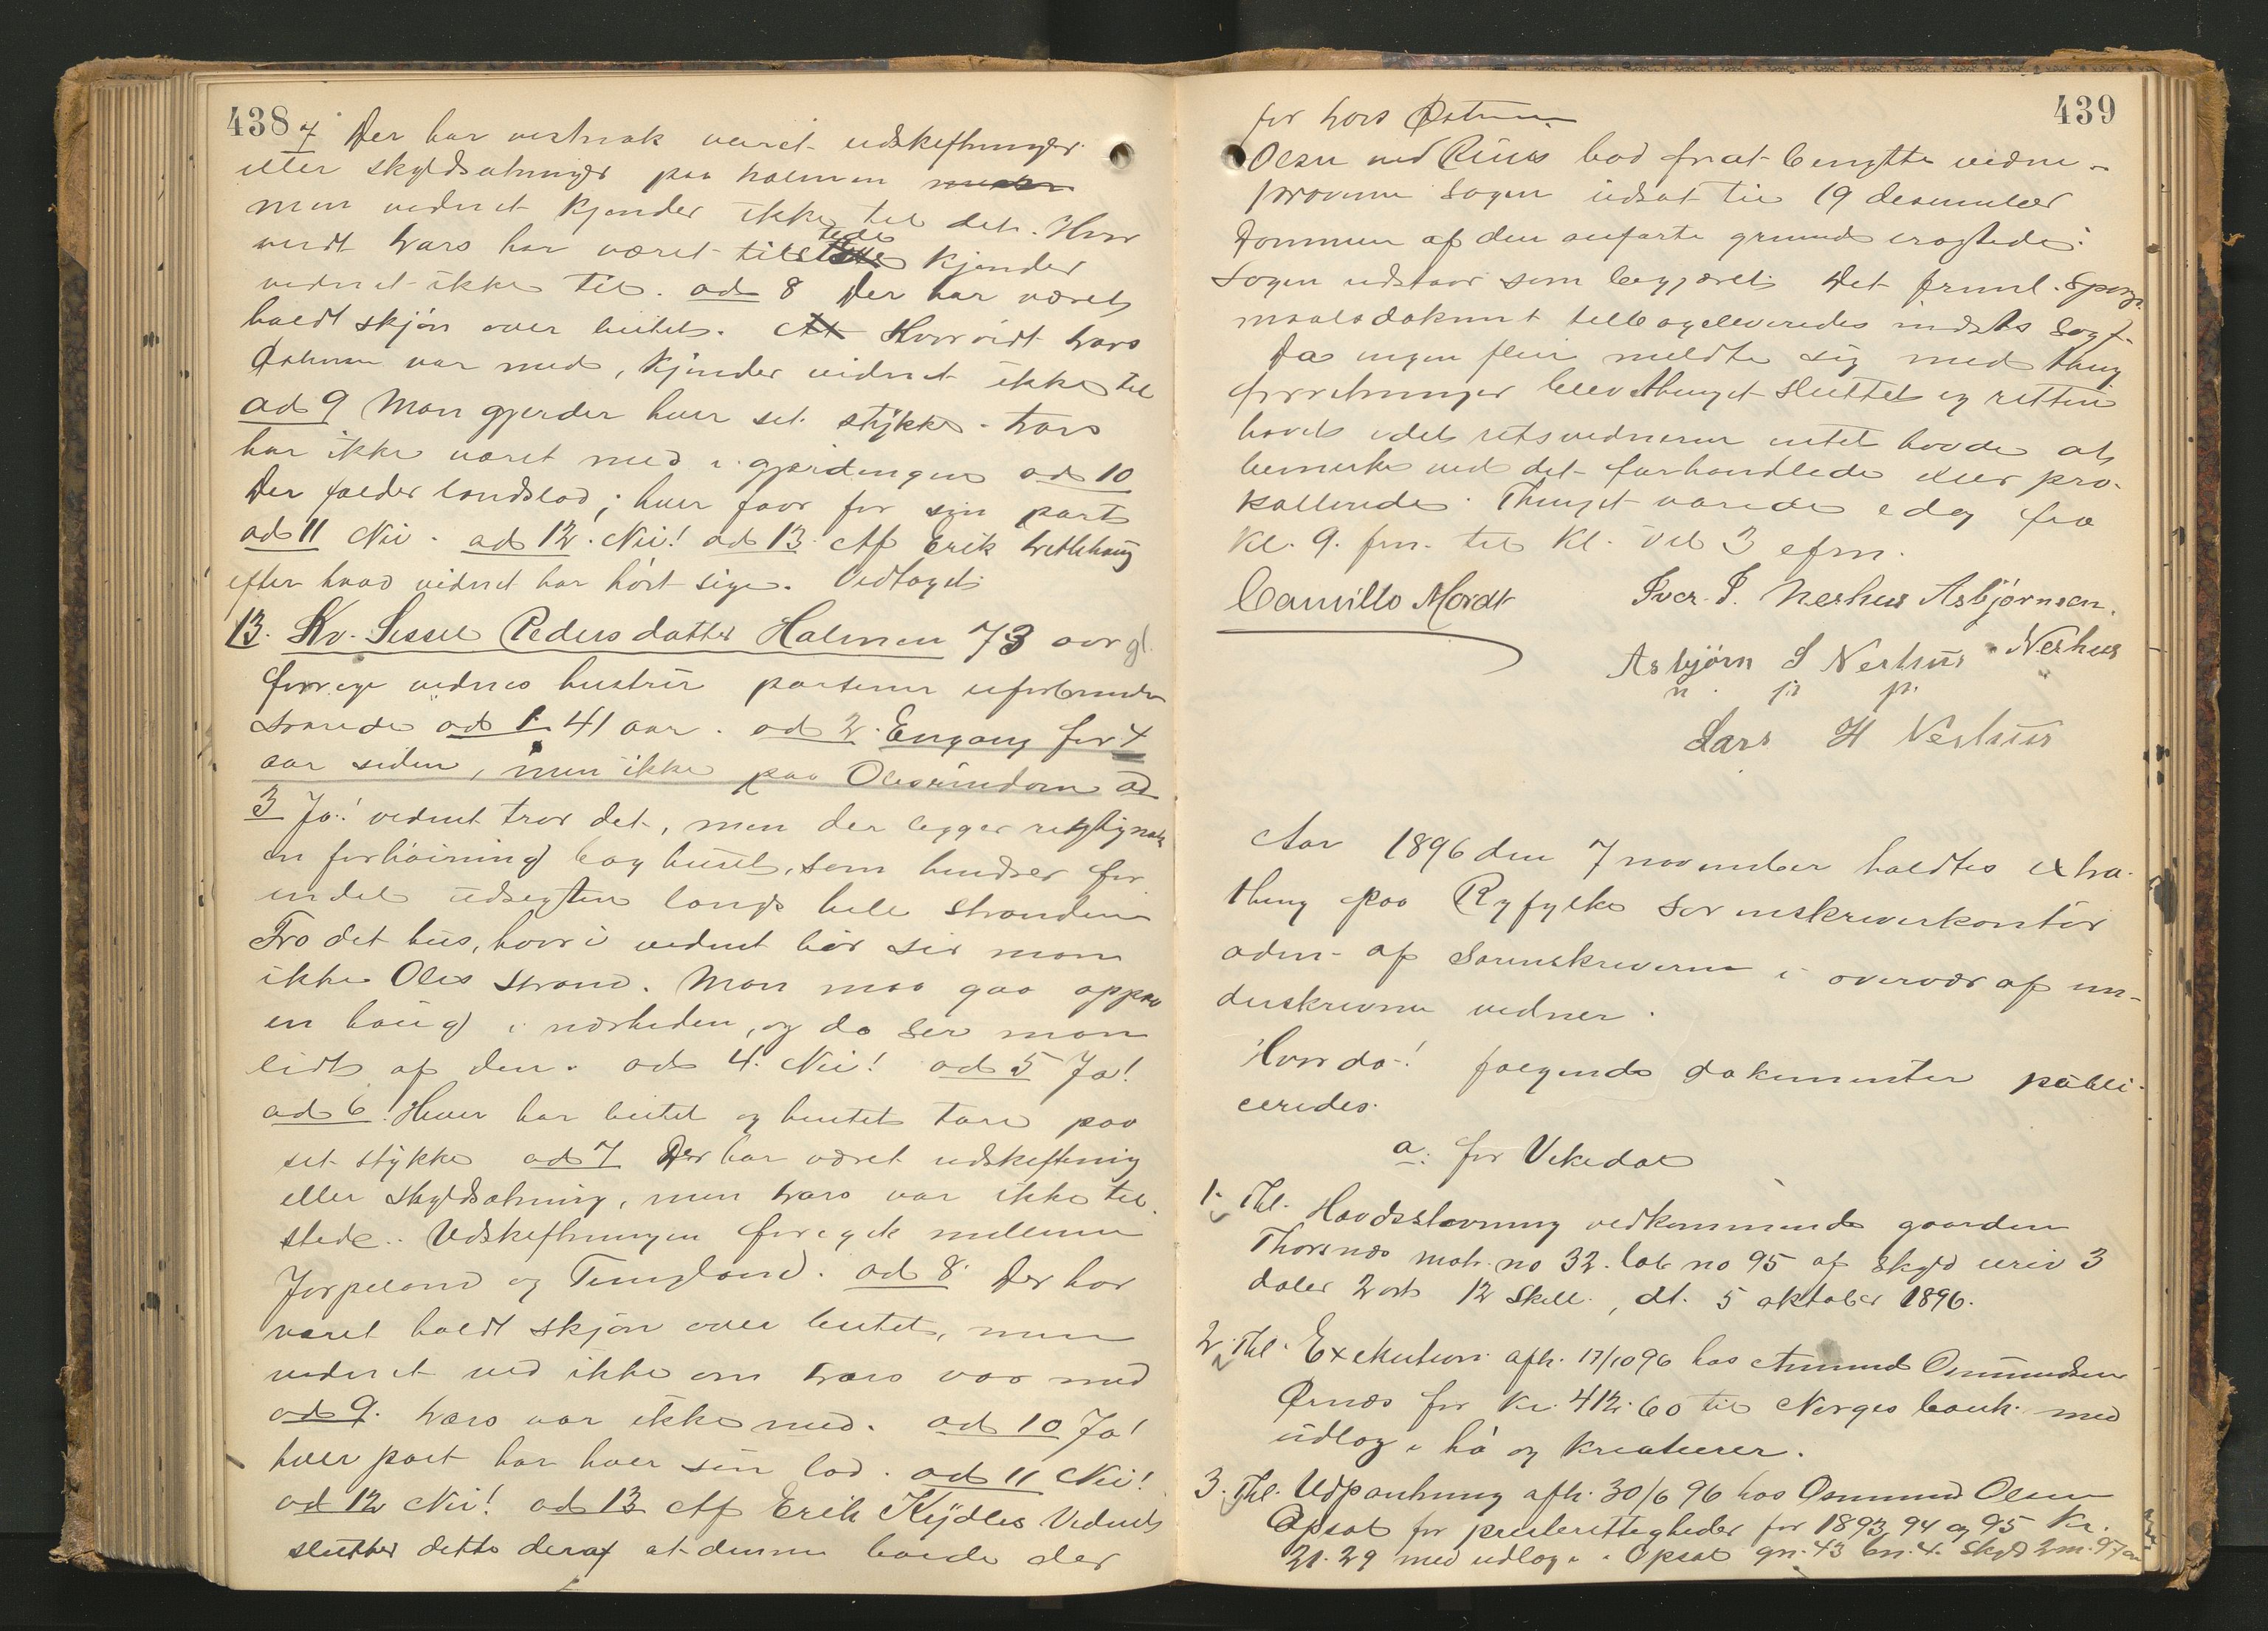 438
7 Der har vistnok været udskiftninger
eller skyldsætninger paa Holmen
men vidnet kjender ikke til det. Hvor
vidt Lars har været tilstede kjender
vidnet ikke til. ad 8 Der har været
holdt skjön over beitet. Hvorvidt Lars
Östrem var med, kjender vidnet ikke til
ad 9 Man gjerder hver sit stykke. Lars
har ikke været med i gjerdingen ad 10
Der falder landslod; hver faar for sin part
ad 11 Nei. ad 12. Nei! ad 13. Af Erik
efter hvad vidnet har hört sige. Vedtaget
13. Kv. Sissel Pedersdatter Holmen 73 aar gl.
forrige vidnes hustru partene uforbunden
svarede ad 1. 41 aar. ad 2. Engang for 4
aar siden, men ikke paa Oles eiendom ad
3 Ja! vidnet tror det, men der ligger rigtignok
en forhöining bag huset, som hindrer for
endel udsigten langs hele stranden
Fra det hus, hvori vidnet bor ser man
ikke Oles strand. Man maa gaa op paa
en haug i nærheden, og da ser man
lidt af den. ad 4. Nei! ad 5 Ja!
ad 6! Hver har beitet og hentet tare paa
sit stykke ad 7 Der har været udskiftning
eller skyldsætning, men Lars var ikke til
stede. Udskiftningen foregik mellem
Jörpeland og Tungland. ad 8. Der har
været holdt skjön over beitet, men
vidnet ved ikke om Lars var med
ad 9. Lars var ikke med. ad 10 Ja!
hver part har hver sin lod. ad 11 Nei!
ad 12 Nei! ad 13 Af Erik Vidnet
slutter dette deraf at denne havde der
439
for Lars Östrem
Olsen ved Riis bad for at benytte vidne-
prøverne sagen udsat til 19 desember
Dommen af den anførte grund eragtede:
Sagen udstaar som begjæret. Det frml. Spørgs
maalsdokument
Da ingen flere meldte sig med thing
forretninger blev thinget sluttet og retten
hævet idet retsvidnerne intet havde at
bemerke ved det forhandlede eller pro-
kollerede. Thinget varede idag fra
Kl. 9. fm. til Kl. vel 3 efm.
Camillo Mordt
Iver I. Neshus Asbjörnsen.
Neshus
Asbjörn S Neshus
m. p. p.
Lars H Neshus
Aar 1896 den 7 november holdtes extra-
thing paa Ryfylke sorenskriverkontor
adm. af Sorenskriveren i overvær af un-
derskrevne vidner.
Hvorda! følgende dokumenter publi-
ceredes.
a. for Vikedal
1. Thl. Havdsstevning vedkommende gaarden
Thorsnæs matr. no 32. løb no 95 af Skyld urev 3
daler 2 ort 12 Skill., dt. 5 oktober 1896.
2. Thl. Exekution afh. 17/10 96 hos Amund Osmundsen
Ørnæs for Kr. 412.60 til Norges bank med
udlæg i hö og kreaturer.
3. Thl. Udpantning afh. 30/6 96 hos Osmund Olsen
Opsal for presterettigheder for 1893, 94 og 95 Kr.
21.29 med udlæg i Opsal gn. 43 bn. 4. Skyld 2 m. 97